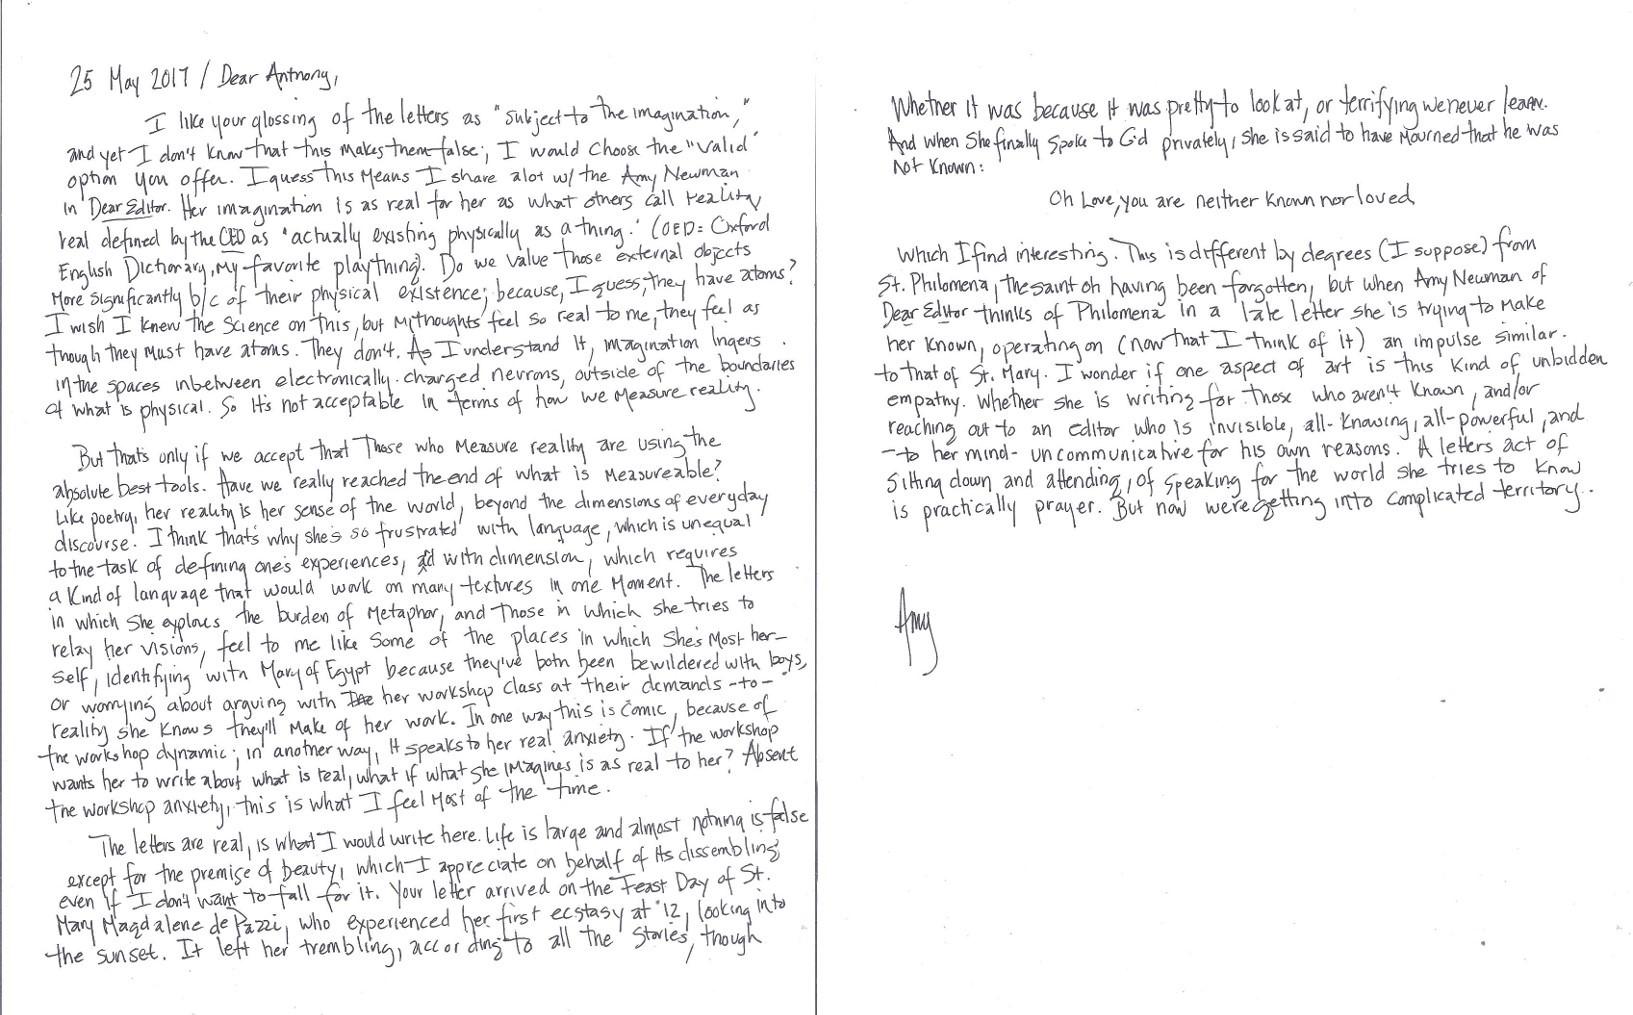 25 May 2017 / Dear Anthony,
I like your glossing of the letters as "subject to the imagination,"
and yet I don't know that this makes them false; I would choose the "valid"
option you offer. I guess this means I share alot w/ the Amy Newman
in Dear Editor. Her imagination is as real for her as what others call reality,
real defined by the OED as "actually existing physically as a thing." (OED: Oxford
English Dictionary, my favorite plaything). Do we value those external objects
more significantly b/c of their physical existence; because, I guess, they have atoms?
I wish I knew the science on this, but my thoughts feel so real to me, they feel as
though they must have atoms. They don't. As I understand it, imagination lingers
in the spaces inbetween electronically-charged neurons, outside of the boundaries
of what is physical. So it's not acceptable in terms of how we measure reality.
But that's only if we accept that those who measure reality are using the
absolute best tools. Have we really reached the end of what is measureable?
Like poetry, her reality is her sense of the world, beyond the dimensions of everyday
discourse. I think that's why she's so frustrated with language, which is unequal
to the task of defining one's experiences, and with dimension, which requires
a kind of language that would work on many textures in one moment. The letters
in which she explores the burden of metaphor, and those in which she tries to
relay her visions, feel to me like some of the places in which she's most her-
self, identifying with Mary of Egypt because they've both been bewildered with boys,
or worrying about arguing with her workshop class at their demands -to-
reality she knows they'll make of her work. In one way this is comic, because of
the workshop dynamic; in another way, it speaks to her real anxiety. If the workshop
wants her to write about what is real, what if what she imagines is as real to her? Absent
the workshop anxiety, this is what I feel most of the time.
The letters are real, is what I would write here. Life is large and almost nothing is false
except for the premise of beauty, which I appreciate on behalf of its dissembling
even if I don't want to fall for it. Your letter arrived on the Feast Day of St.
Mary Magdalene de Pazzi, who experienced her first ecstasy at 12, looking into
the sunset. It left her trembling, according to all the stories, though
Whether it was because it was pretty to look at, or terrifying we never learn.
And when she finally spoke to G-d privately, she is said to have mourned that he was
not known:
Oh Love, you are neither known nor loved
Which I find interesting. This is different by degrees (I suppose) from
St. Philomena, the saint of having been forgotten, but when Amy Newman of
Dear Editor thinks of Philomena in a late letter she is trying to make
her known, operating on (now that I think of it) an impulse similar
to that of St. Mary. I wonder if one aspect of art is this kind of unbidden
empathy. Whether she is writing for those who aren't known, and/or
reaching out to an editor who is invisible, all-knowing, all-powerful, and
-to her mind- uncommunicative for his own reasons. A letters act of
sitting down and attending, of speaking for the world she tries to know
is practically prayer. But now were getting into complicated territory.
Amy